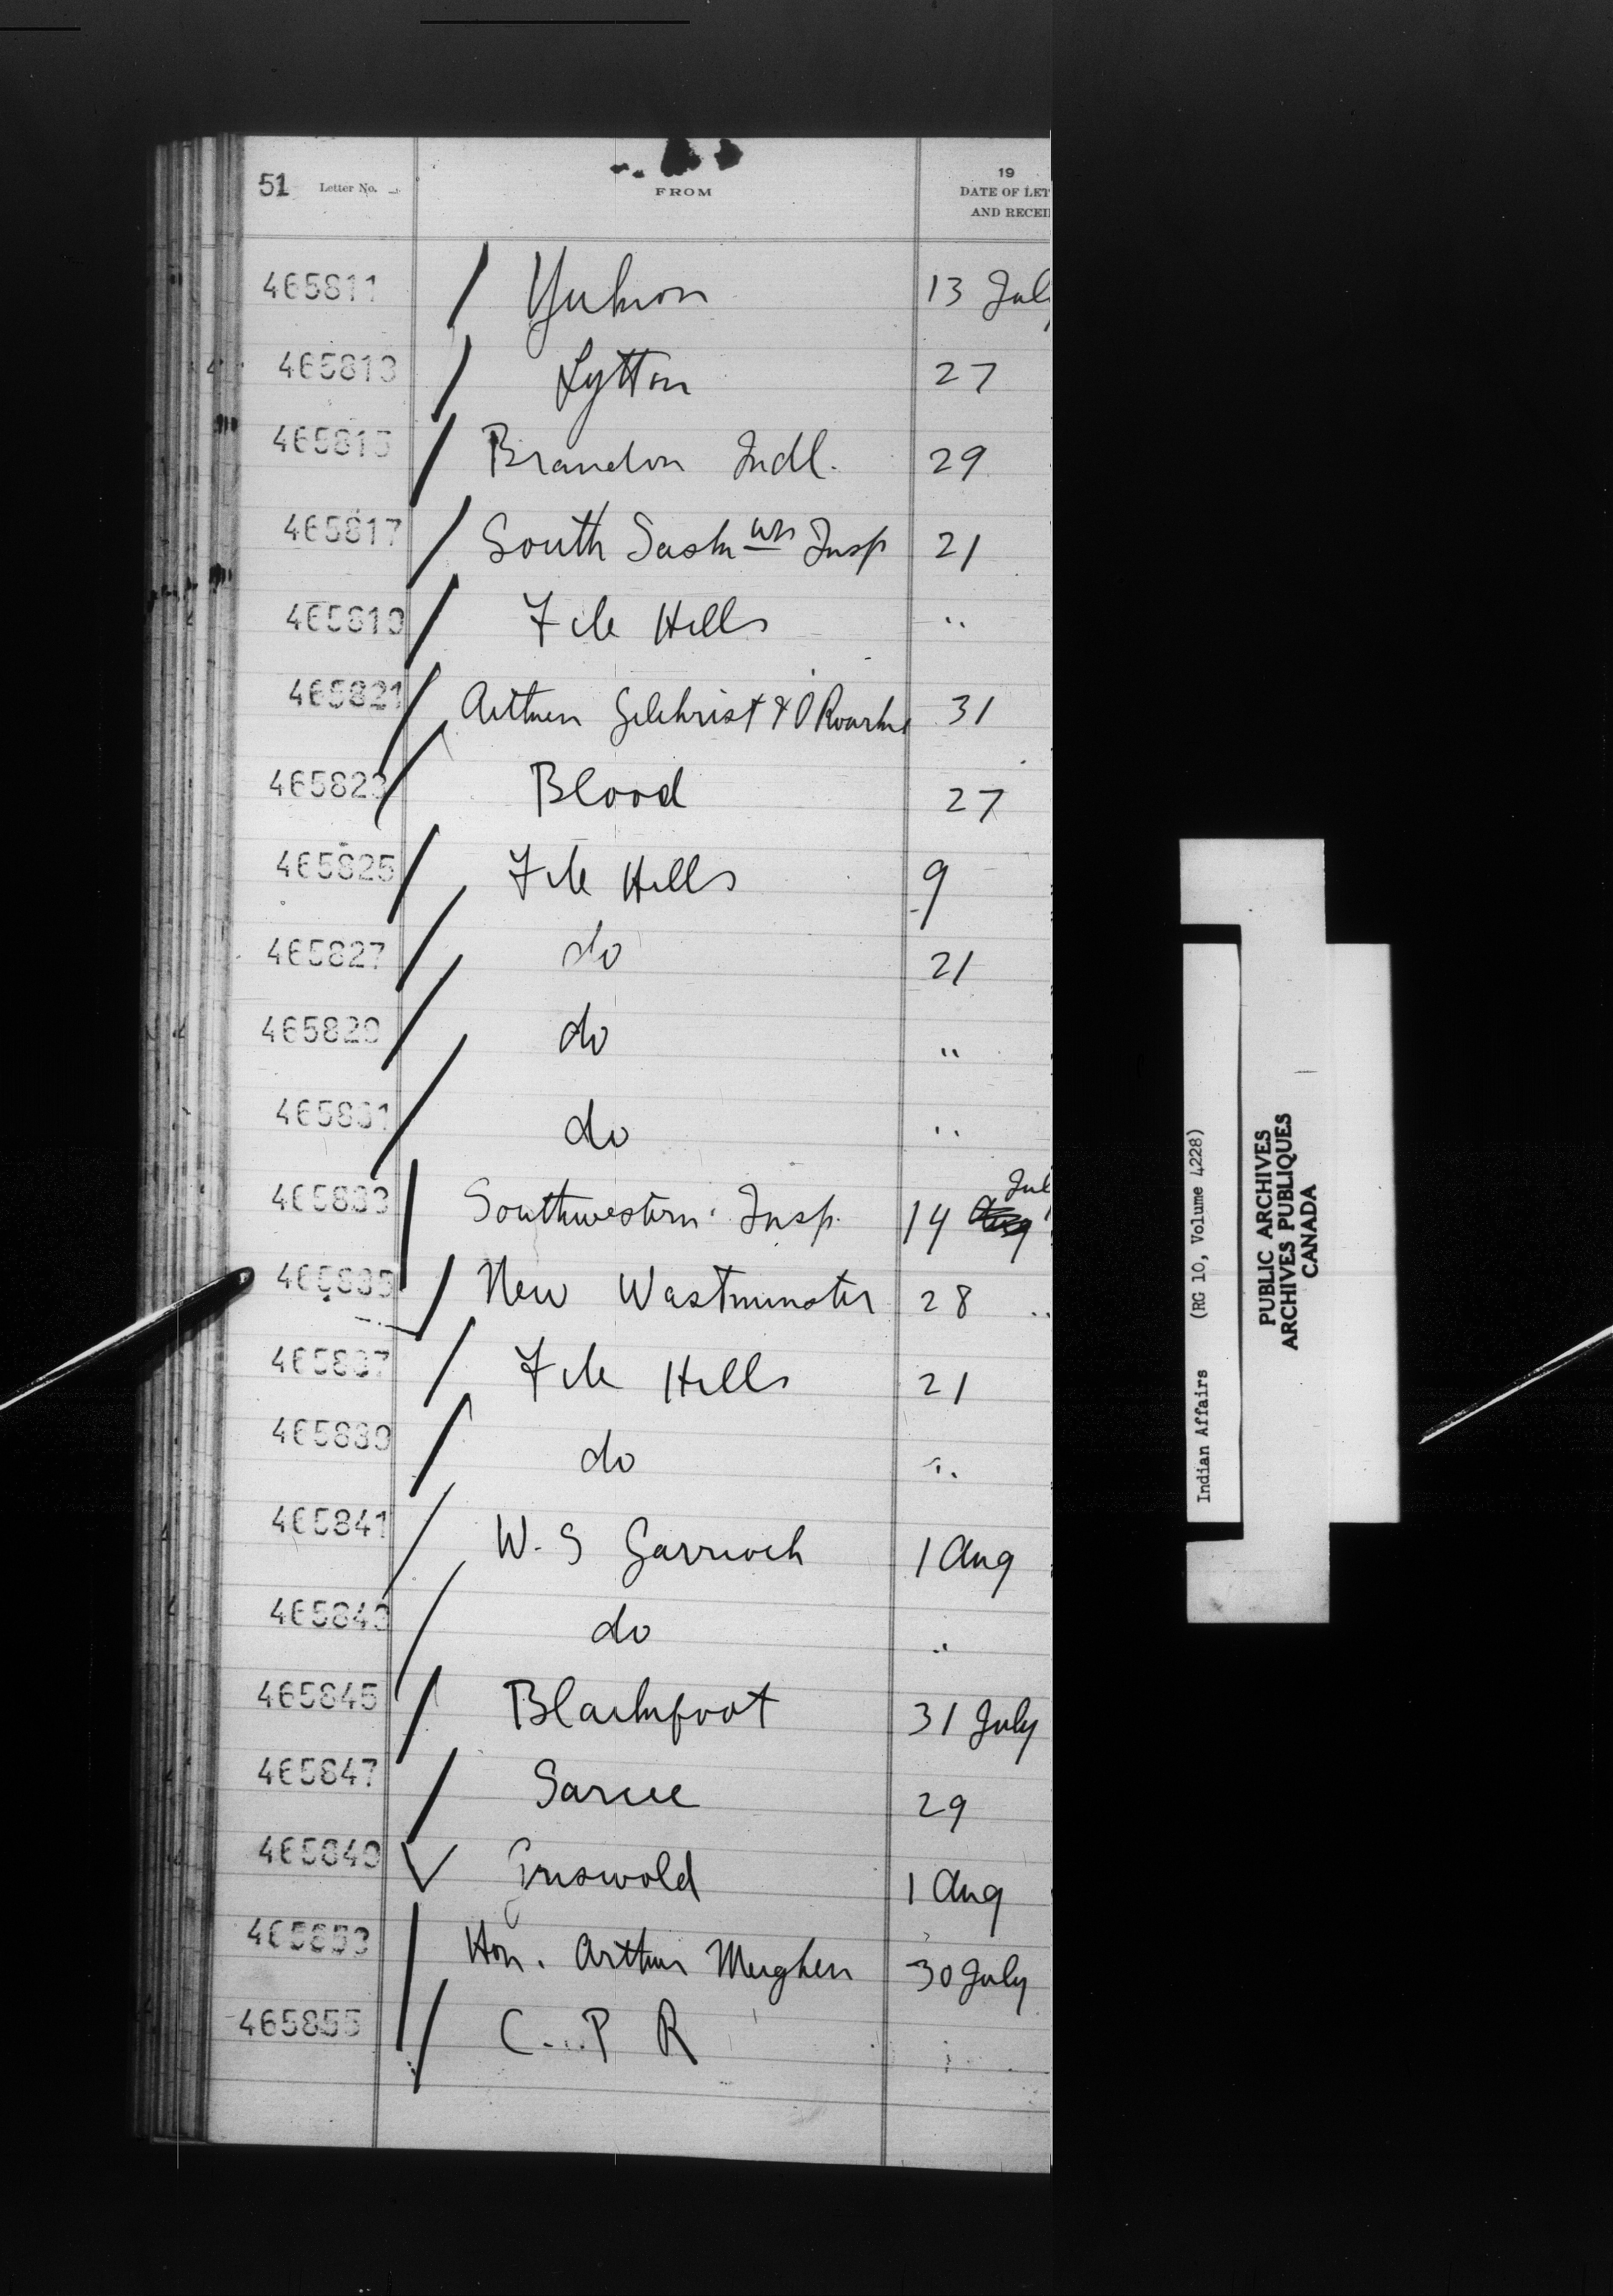 51 Letter No. FROM 19
DATE OF LET
AND RECEI
465811 / Yukon 13 July
465813 / Lytton 27
465815 / Brandon Indl. 29
465817 / South Sask wn Insp 21
465819 / File Hills "
465821 / Arthur Gilchrist & O Rourke 31
465823 / Blood 27
465825 / File Hills 9
465827 / do 21
465829 / do "
465831 / do "
465833 / Southwestern Insp. 14 July
465835 / New Westminster 28 "
465837 / File Hills 21
465839 / do "
465841 / W. S Garrioch 1 Aug
465843 / do "
465845 / Blackfoot 31 July
465847 / Sarcee 29
465849 ✓ Griswold 1 Aug
465853 / Hon. Arthur Meighen 30 July
465855 / C. P R "
Indian Affairs (RG 10, Volume 4228)
PUBLIC ARCHIVES
ARCHIVES PUBLIQUES
CANADA